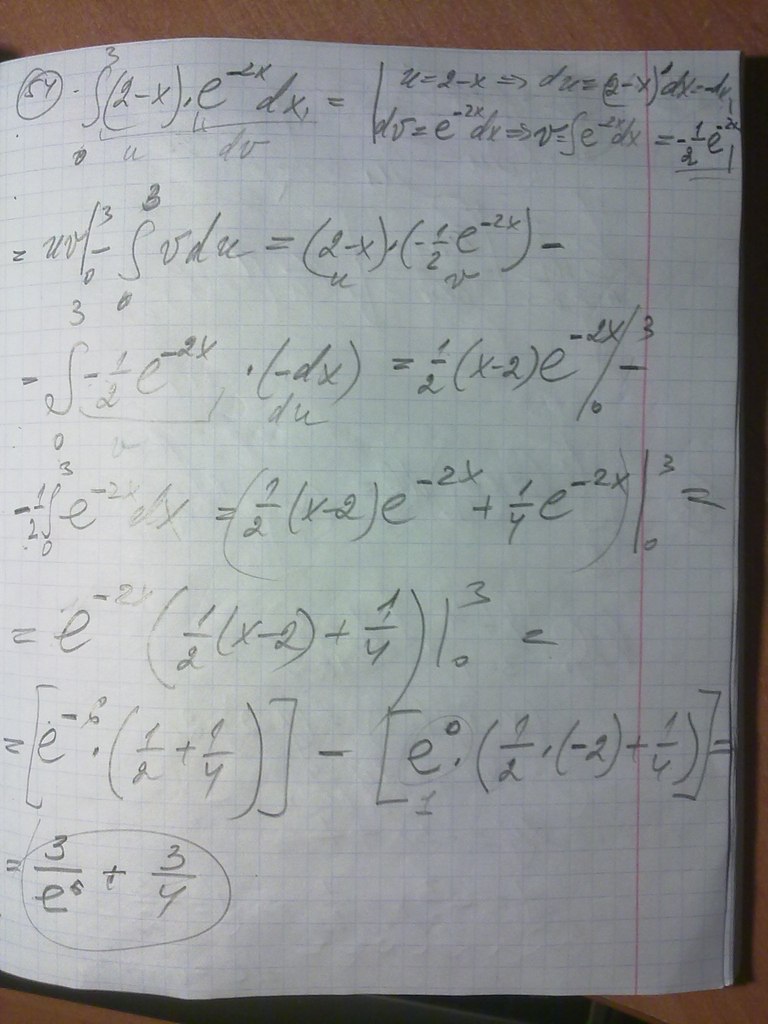 54. ∫₀³ (2-x)·e^{-2x} dx = | u = 2-x ⇒ du = (2-x)' dx = -dx
u dv | dv = e^{-2x} dx ⇒ v = ∫e^{-2x} dx = -1/2 e^{-2x} |
= uv|₀³ - ∫₀³ v du = (2-x)·(-1/2 e^{-2x}) -
u v
- ∫₀³ -1/2 e^{-2x} · (-dx) = 1/2 (x-2) e^{-2x} |₀³ -
v du
-1/2 ∫₀³ e^{-2x} dx = (1/2 (x-2) e^{-2x} + 1/4 e^{-2x}) |₀³ =
= e^{-2x} (1/2 (x-2) + 1/4) |₀³ =
= [e^{-6} · (1/2 + 1/4)] - [e^0 · (1/2 · (-2) + 1/4)] =
1
= 3/e^6 + 3/4